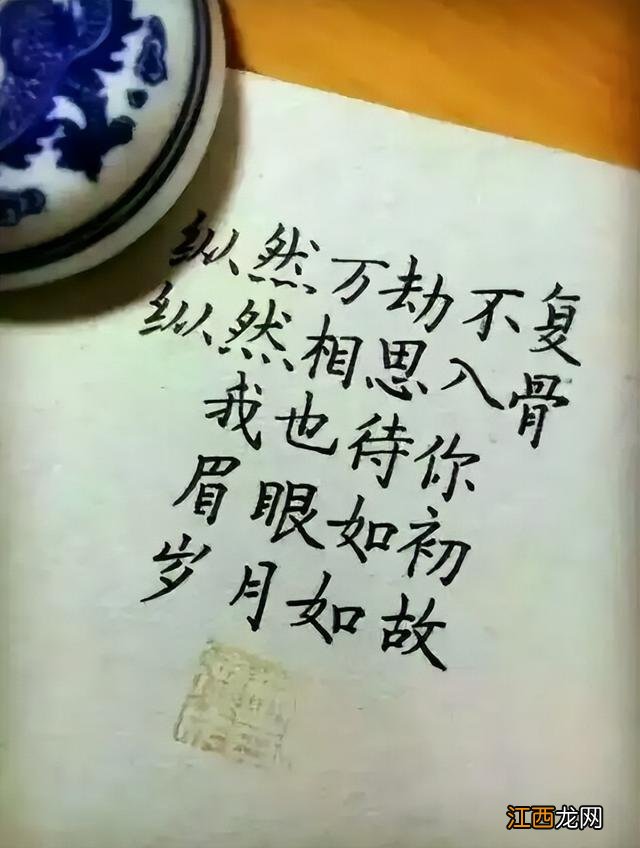 纵然万劫不复
纵然相思入骨
我也待你
眉眼如初
岁月如故
江西龙网